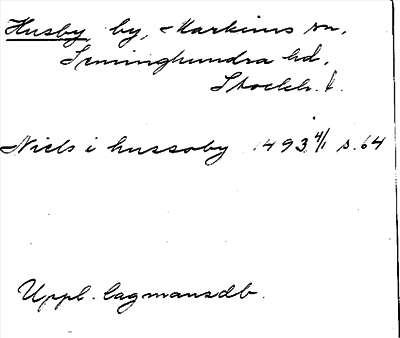 Husby by, Markims sn,
Seminghundra hd,
Stockh. l.
Niels i hussaby 1493 4/1 s. 64
Uppl. lagmansdb.